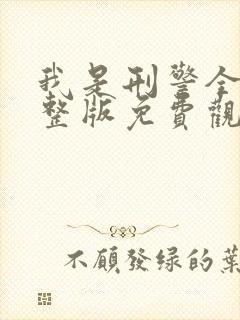 我是刑警全
整版免費觀
不願發绿的葉